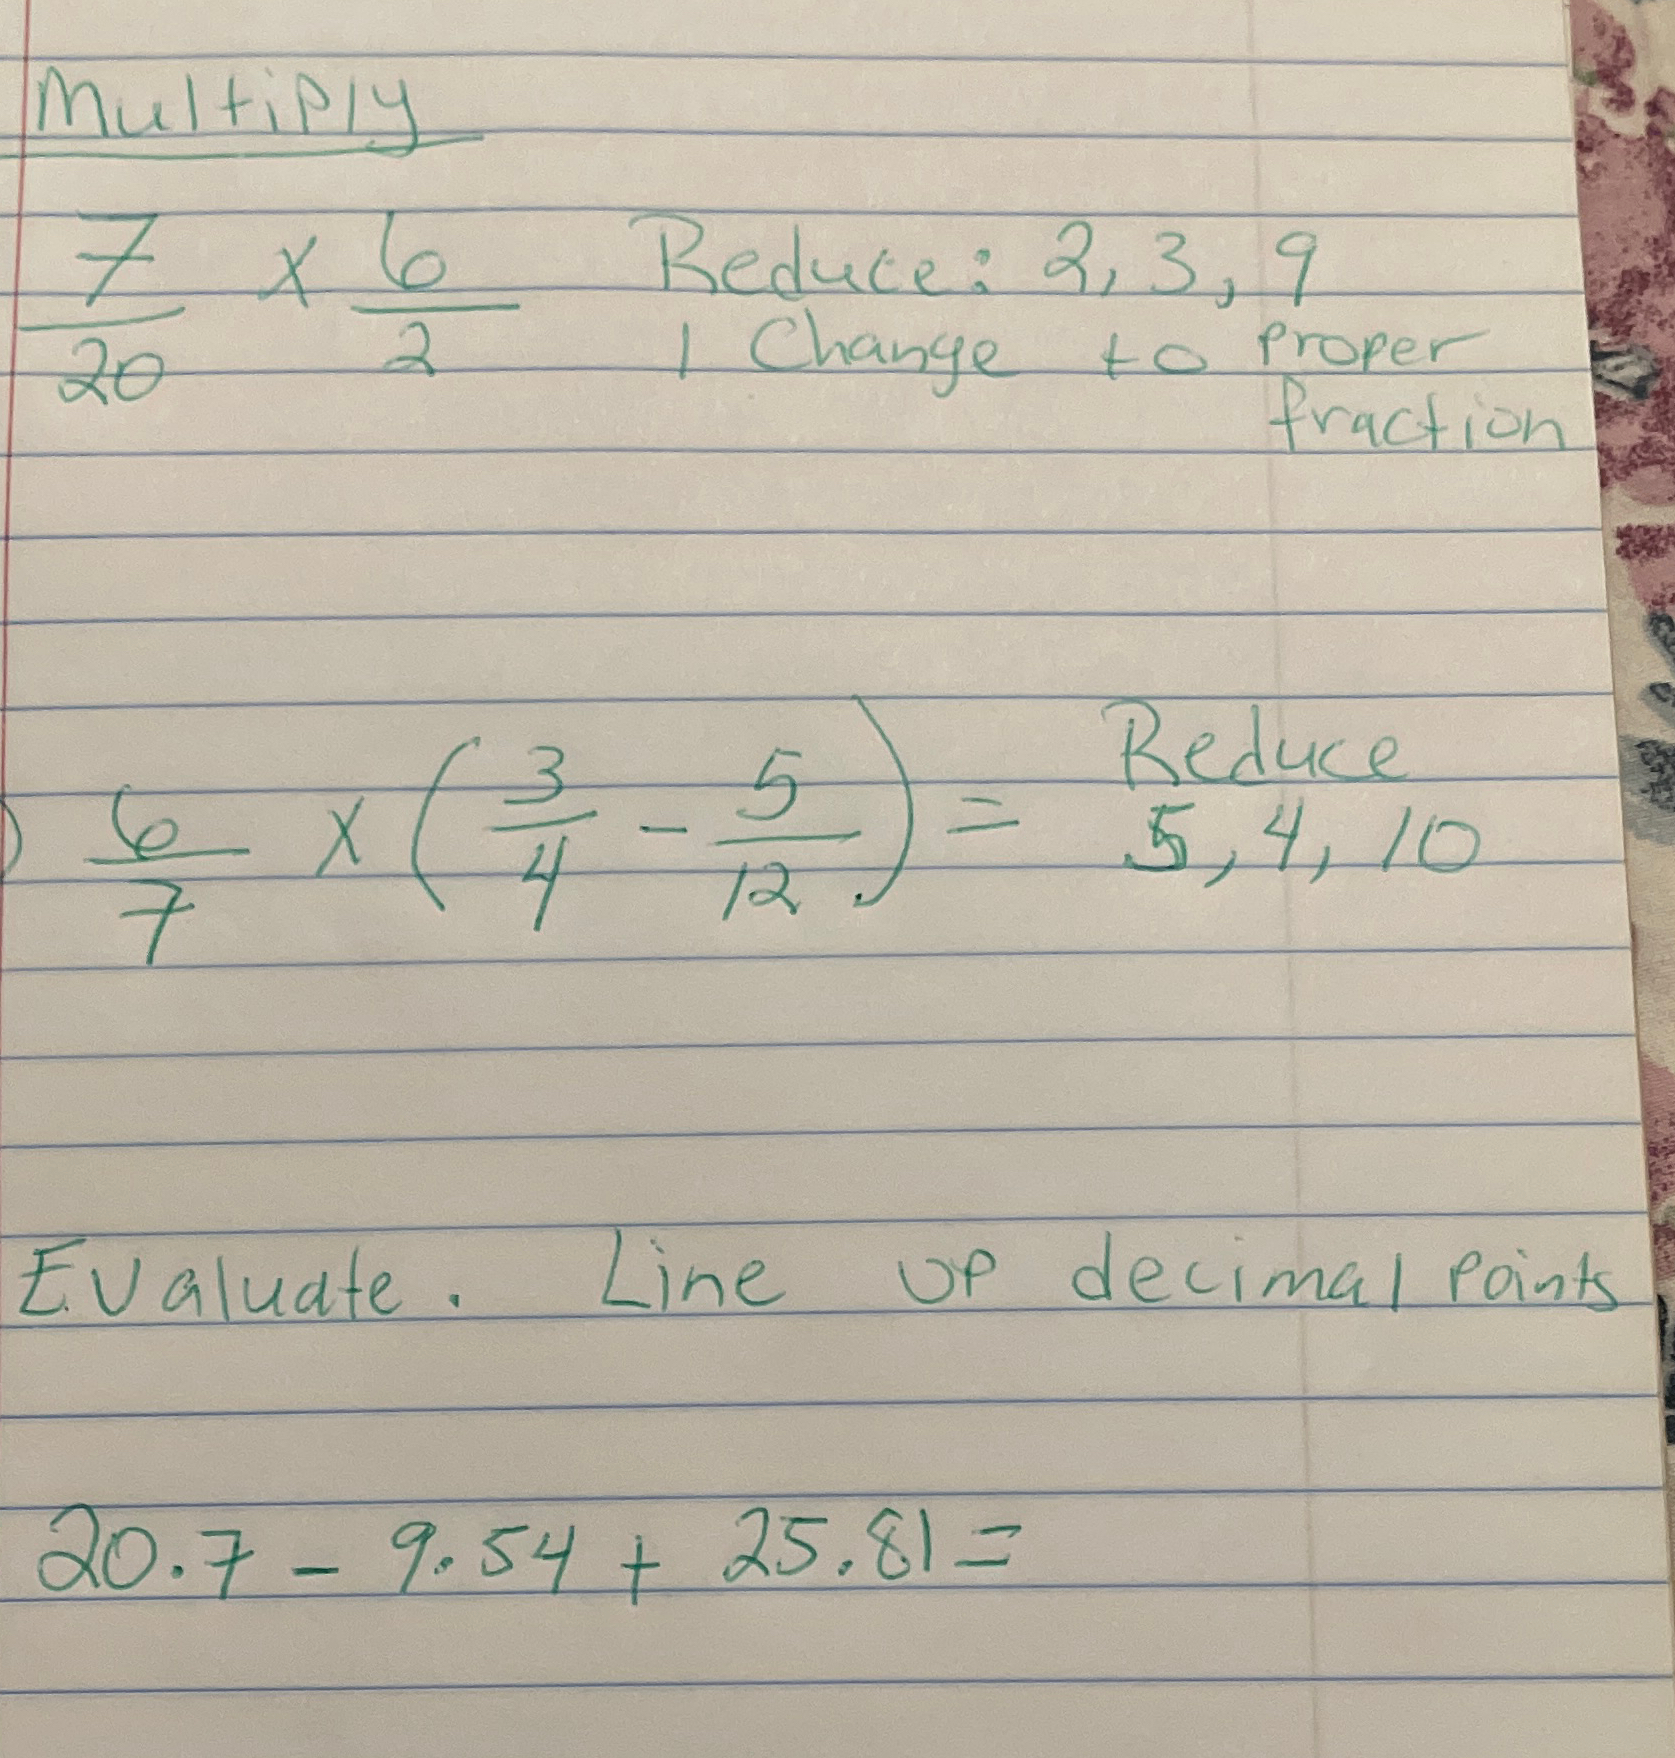 Multiply
7/20 x 6/2 Reduce: 2, 3, 9
1 Change to proper
fraction
Reduce
) 6/7 x (3/4 - 5/12) = 5, 4, 10
Evaluate. Line up decimal points
20.7 - 9.54 + 25.81 =